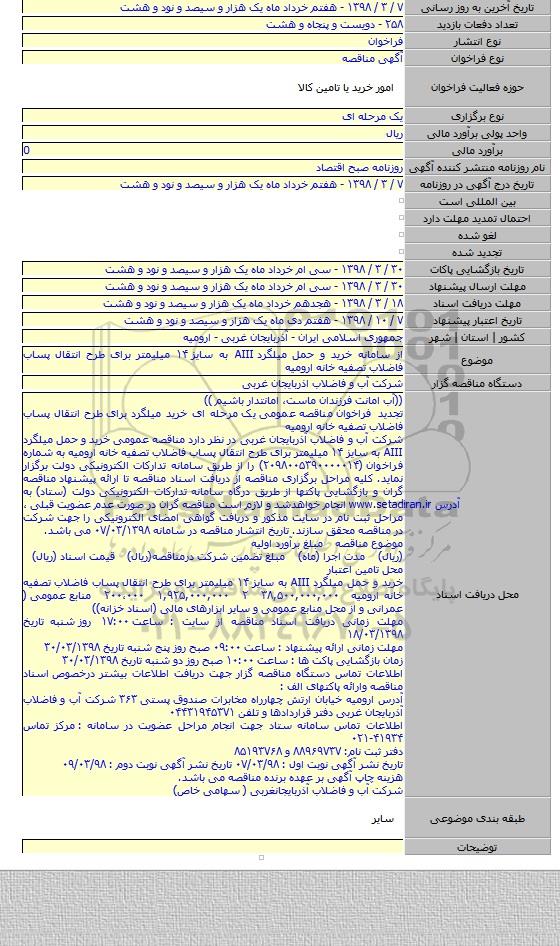 تاریخ آخرین به روز رسانی ۷ / ۳ / ۱۳۹۸ - هفتم خرداد ماه یک هزار و سیصد و نود و هشت
تعداد دفعات بازدید ۲۵۸ - دویست و پنجاه و هشت
نوع انتشار فراخوان
نوع فراخوان آگهی مناقصه
حوزه فعالیت فراخوان امور خرید یا تامین کالا
نوع برگزاری یک مرحله ای
واحد پولی برآورد مالی ریال
برآورد مالی 0
نام روزنامه منتشر کننده آگهی روزنامه صبح اقتصاد
تاریخ درج آگهی در روزنامه ۷ / ۳ / ۱۳۹۸ - هفتم خرداد ماه یک هزار و سیصد و نود و هشت
بین المللی است
احتمال تمدید مهلت دارد
لغو شده
تجدید شده
تاریخ بازگشایی پاکات ۳۰ / ۳ / ۱۳۹۸ - سی ام خرداد ماه یک هزار و سیصد و نود و هشت
مهلت ارسال پیشنهاد ۳۰ / ۳ / ۱۳۹۸ - سی ام خرداد ماه یک هزار و سیصد و نود و هشت
مهلت دریافت اسناد ۱۸ / ۳ / ۱۳۹۸ - هجدهم خرداد ماه یک هزار و سیصد و نود و هشت
تاریخ اعتبار پیشنهاد ۷ / ۱۰ / ۱۳۹۸ - هفتم دی ماه یک هزار و سیصد و نود و هشت
کشور | استان | شهر جمهوری اسلامی ایران - آذربایجان غربی - ارومیه
موضوع از سامانه خرید و حمل میلگرد AIII به سایز ۱۴ میلیمتر برای طرح انتقال پساب
فاضلاب تصفیه خانه ارومیه
دستگاه مناقصه گزار شرکت آب و فاضلاب آذربایجان غربی
محل دریافت اسناد
((آب امانت فرزندان ماست، امانتدار باشیم ))
تجدید فراخوان مناقصه عمومی یک مرحله ای خرید میلگرد برای طرح انتقال پساب
فاضلاب تصفیه خانه ارومیه
شرکت آب و فاضلاب آذربایجان غربی در نظر دارد مناقصه عمومی خرید و حمل میلگرد
AIII به سایز ۱۴ میلیمتر برای طرح انتقال پساب فاضلاب تصفیه خانه ارومیه به شماره
فراخوان (۲۰۹۸۰۰۵۳۹۰۰۰۰۰۱۴) را از طریق سامانه تدارکات الکترونیکی دولت برگزار
نماید. کلیه مراحل برگزاری مناقصه از دریافت اسناد مناقصه تا ارائه پیشنهاد مناقصه
گران و بازگشایی پاکتها از طریق درگاه سامانه تدارکات الکترونیکی دولت (ستاد) به
آدرس www.setadiran.ir انجام خواهدشد و لازم است مناقصه گران در صورت عدم عضویت قبلی ،
مراحل ثبت نام در سایت مذکور و دریافت گواهی امضای الکترونیکی را جهت شرکت
در مناقصه محقق سازند. تاریخ انتشار مناقصه در سامانه ۰۷/۰۳/۱۳۹۸ می باشد.
موضوع مناقصه مبلغ برآورد اولیه
(ریال) مدت اجرا (ماه) مبلغ تضمین شرکت درمناقصه(ریال) قیمت اسناد (ریال)
محل تامین اعتبار
خرید و حمل میلگرد AIII به سایز ۱۴ میلیمتر برای طرح انتقال پساب فاضلاب تصفیه
خانه ارومیه ۳۸,۵۰۰,۰۰۰,۰۰۰ ۲ ۱,۹۲۵,۰۰۰,۰۰۰ ۲۰۰.۰۰۰ منابع عمومی (
عمرانی و از محل منابع عمومی و سایر ابزارهای مالی (اسناد خزانه))
مهلت زمانی دریافت اسناد مناقصه از سایت : ساعت ۱۷:۰۰ روز شنبه تاریخ
۱۸/۰۳/۱۳۹۸
مهلت زمانی ارائه پیشنهاد : ساعت ۰۹:۰۰ صبح روز پنج شنبه تاریخ ۳۰/۰۳/۱۳۹۸
زمان بازگشایی پاکت ها : ساعت ۱۰:۰۰ صبح روز دو شنبه تاریخ ۳۰/۰۳/۱۳۹۸
اطلاعات تماس دستگاه مناقصه گزار جهت دریافت اطلاعات بیشتر درخصوص اسناد
مناقصه وارائه پاکتهای الف :
آدرس ارومیه خیابان ارتش چهارراه مخابرات صندوق پستی ۳۶۳ شرکت آب و فاضلاب
آذربایجان غربی دفتر قراردادها و تلفن ۰۴۴۳۱۹۴۵۳۷۱
اطلاعات تماس سامانه ستاد جهت انجام مراحل عضویت در سامانه : مرکز تماس
۰۲۱-۴۱۹۳۴
دفتر ثبت نام: ۸۸۹۶۹۷۳۷ و ۸۵۱۹۳۷۶۸
تاریخ نشر آگهی نوبت اول : ۰۷/۰۳/۹۸ تاریخ نشر آگهی نوبت دوم : ۰۹/۰۳/۹۸
هزینه چاپ آگهی بر عهده برنده مناقصه می باشد.
شرکت آب و فاضلاب آذربایجانغربی ( سهامی خاص)
طبقه بندی موضوعی سایر
توضیحات